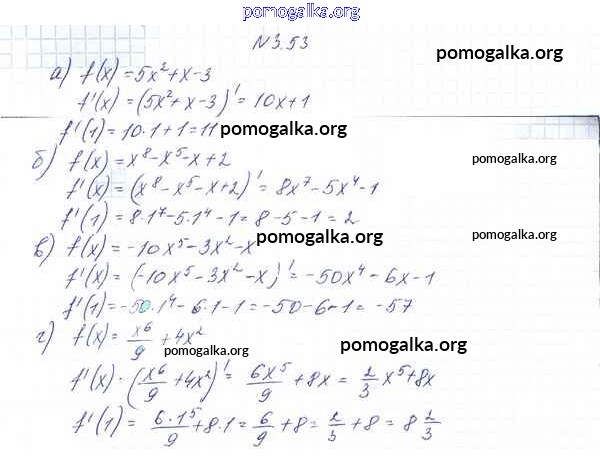 pomogalka.org
N 3.53
pomogalka.org
а) f(x) = 5x² + x - 3
f'(x) = (5x² + x - 3)' = 10x + 1
f'(1) = 10·1 + 1 = 11 pomogalka.org
б) f(x) = x⁸ - x⁵ - x + 2
pomogalka.org
f'(x) = (x⁸ - x⁵ - x + 2)' = 8x⁷ - 5x⁴ - 1
f'(1) = 8·1⁷ - 5·1⁴ - 1 = 8 - 5 - 1 = 2
в) f(x) = -10x⁵ - 3x² - x pomogalka.org
pomogalka.org
f'(x) = (-10x⁵ - 3x² - x)' = -50x⁴ - 6x - 1
f'(1) = -50·1⁴ - 6·1 - 1 = -50 - 6 - 1 = -57
г) f(x) = x⁶/9 + 4x²
pomogalka.org
pomogalka.org
f'(x) · (x⁶/9 + 4x²)' = 6x⁵/9 + 8x = 2/3 x⁵ + 8x
f'(1) = 6·1⁵/9 + 8·1 = 6/9 + 8 = 2/3 + 8 = 8 2/3